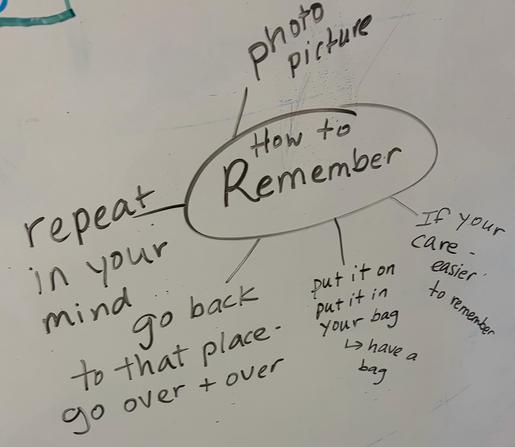 photo
picture
How to
Remember
repeat
in your
mind
go back
to that place -
go over + over
put it on
put it in
your bag
↳ have a
bag
If your
care -
easier
to remember